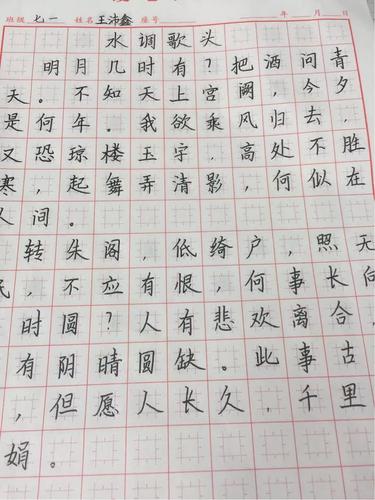 班级 七一 姓名 王沛鑫 座号 年 月 日
水调歌头
明月几时有？把酒问青
天。不知天上宫阙，今夕
是何年。我欲乘风归去，
又恐琼楼玉宇，高处不胜
寒，起舞弄清影，何似在
人间。
转朱阁，低绮户，照无
眠，不应有恨，何事长向
时圆？人有悲欢离合，
有阴晴圆缺。此事古
，但愿人长久，千里
娟。